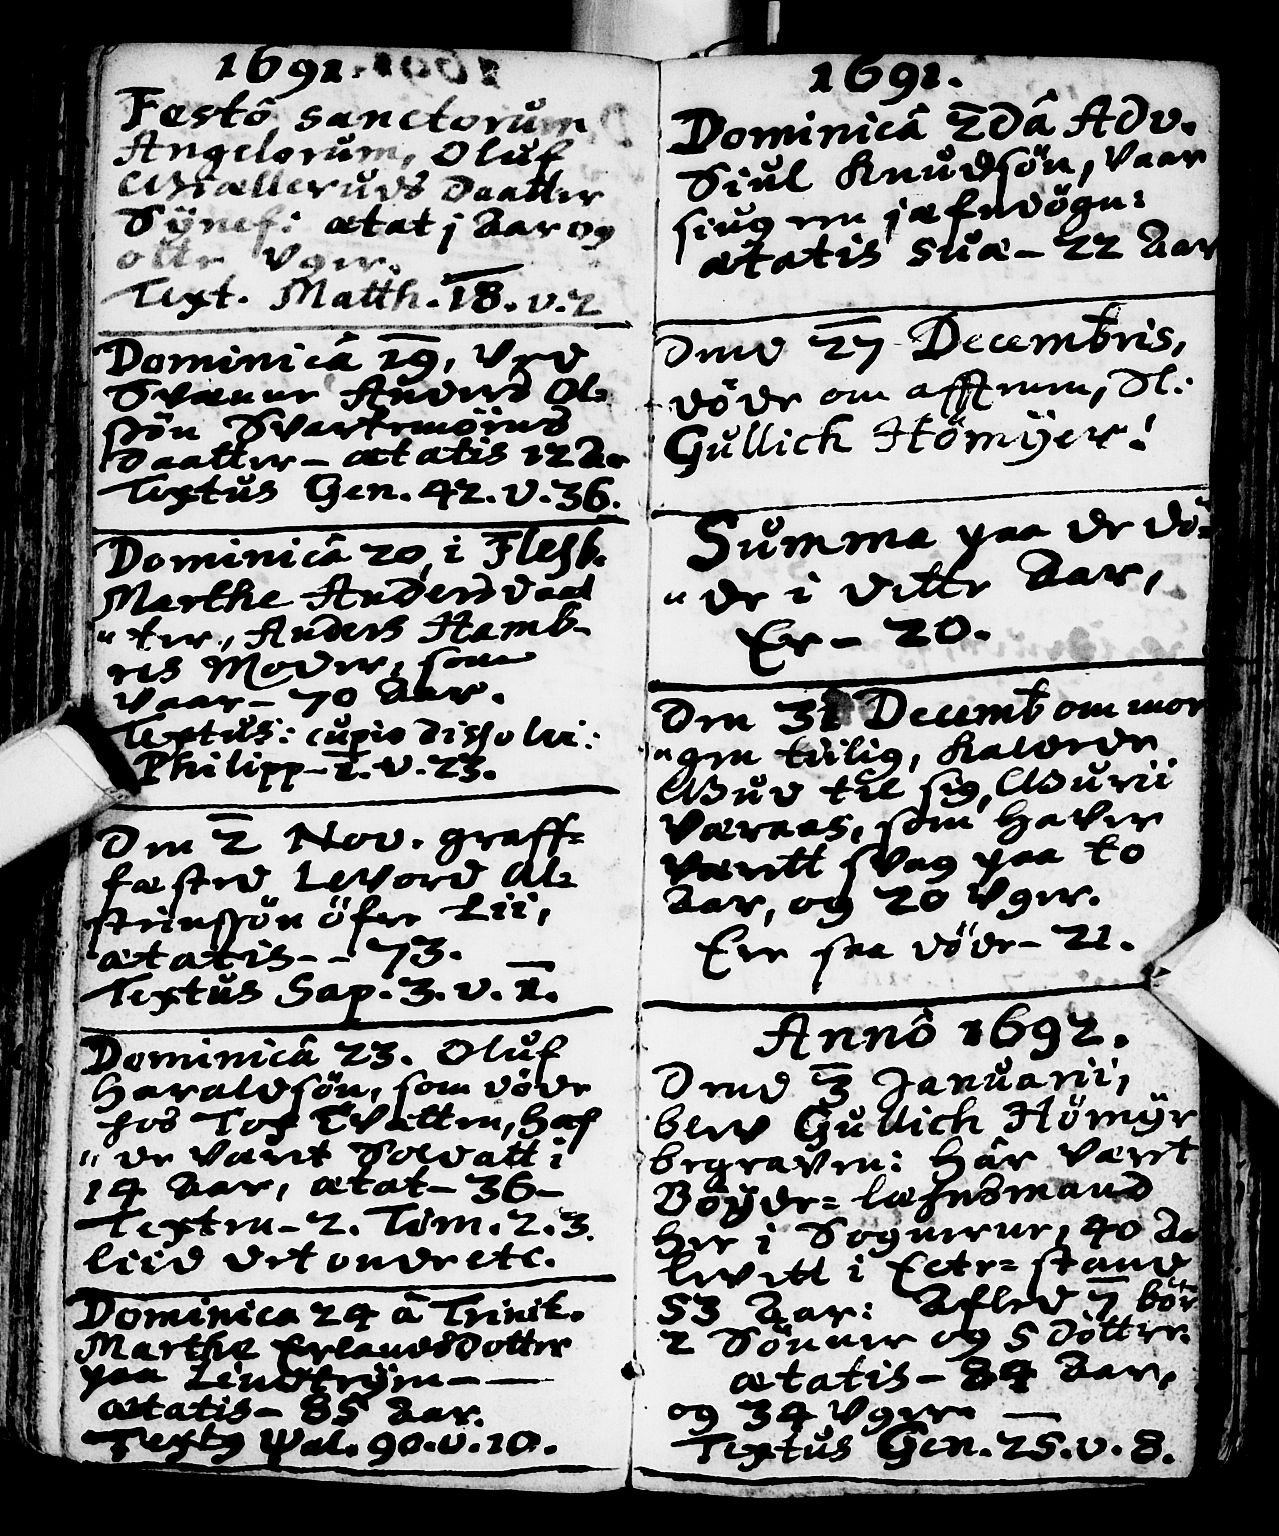 1691.
Festô sanctorum
Angelorum, Oluf
Giælleruds Daatter
Synef: ætat j Aar og
otte Vger.
Text. Matth. 18. v. 2
Dominicâ 19, Ved
Svenne Anders Ol=
søn Svartemöins
Daatter – ætatis 12 Aar
Textus Gen. 42. v. 36.
Dominicâ 20, i Flesb.
Marthe Andersdaat
"ter, Anders Hamb-
res Moder, som
vaar – 70 Aar.
Textus: cupio dissolvi:
Philipp – 1. v. 23.
Den 2 Nov. graff=
fæsted Levord Al=
steinssön öfre Lii,
ætatis - - 73.
Textus Sap. 3. v. 1.
Dominicâ 23. Oluf
Haraldsön, som döde
hos Tof Tvetten, haf
"de værit Soldatt i
14 Aar, ætat – 36 –
Texten – 2. Tim. 2. 3.
liid det onde etc.
Dominica 24 â Trinit.
Marthe Erlandsdotter
paa Lindtrijm – –
ætatis – 85 Aar.
Text9 Psal. 90. v. 10.
1691.
Dominicâ 2dâ Adv.
Siul Knudsön, vaar
siug en jæfndögn:
ætatis suæ – 22 Aar
Dend 27 Decembris,
döde om afftenen, Sl:
Gullich Hömyer!
Summa paa de dö=
"de i dette Aar,
Er – 20.
Den 31 Decemb om mor
"gen tiilig, kalede
Gud til sig, Gurii
Væraas, som haver
væritt svag paa to
Aar, og 20 Vger.
Ere saa döde – 21.
Annô 1692.
Dend 3 Januarii,
blev Gullich Hömyr
begraven: hâr værit
Böyde=læhnsmand
her i Sognene, 40 Aa
levett i Ecte=stand
53 Aar: Afled 7 bör
2 Sönner og 5 Döttre.
ætatis – 84 Aar,
og 34 Vger –
Textus Gen. 25. v. 8.